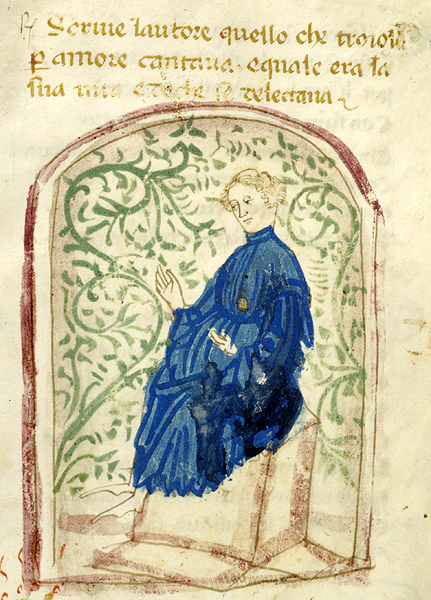 Scriue lautore quello che troiolo
ꝑ amore cantaua. equale era la
sua uita che se delectaua